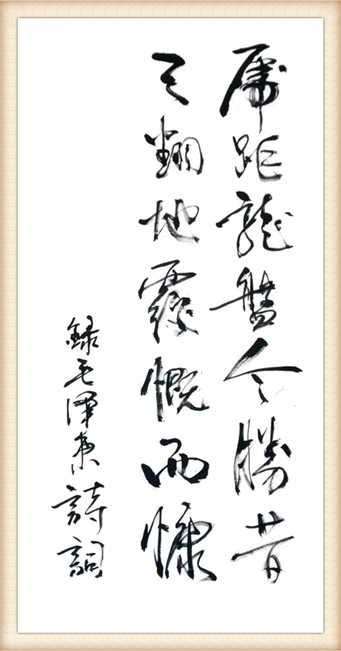 虎距龍盤今勝昔
天翻地覆慨而慷
録毛澤東詩詞